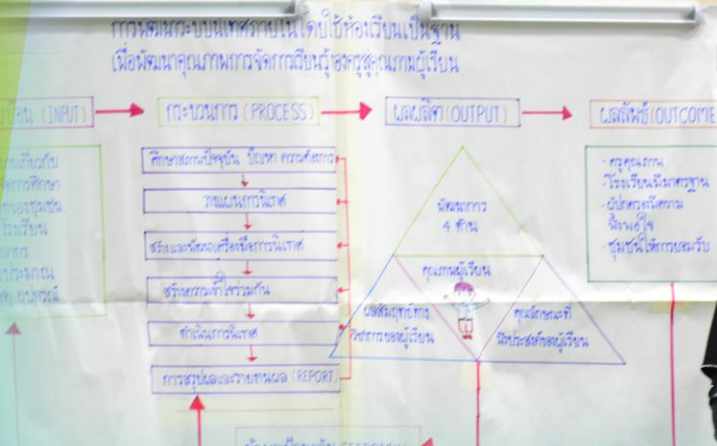 การพัฒนาระบบนิเทศภายในโดยใช้ห้องเรียนเป็นฐาน
เพื่อพัฒนาคุณภาพการจัดการเรียนรู้ของครูสู่คุณภาพผู้เรียน
(INPUT)
กระบวนการ (PROCESS)
ผลผลิต (OUTPUT)
ผลลัพธ์ (OUTCOME
ศึกษาสภาพปัจจุบัน ปัญหา ความต้องการ
วางแผนการนิเทศ
สร้างและพัฒนาเครื่องมือการนิเทศ
สร้างความเข้าใจร่วมกัน
ดำเนินการนิเทศ
การสรุปผลและรายงานผล (REPORT)
พัฒนาการ
4 ด้าน
คุณภาพผู้เรียน
ผลสัมฤทธิ์ทาง
วิชาการของผู้เรียน
คุณลักษณะที่
พึงประสงค์ของผู้เรียน
- ครูคุณภาพ
- โรงเรียนมีมาตรฐาน
- ผู้ปกครองมีความ
พึงพอใจ
- ชุมชนให้การยอมรับ
ชุมชน
โรงเรียน